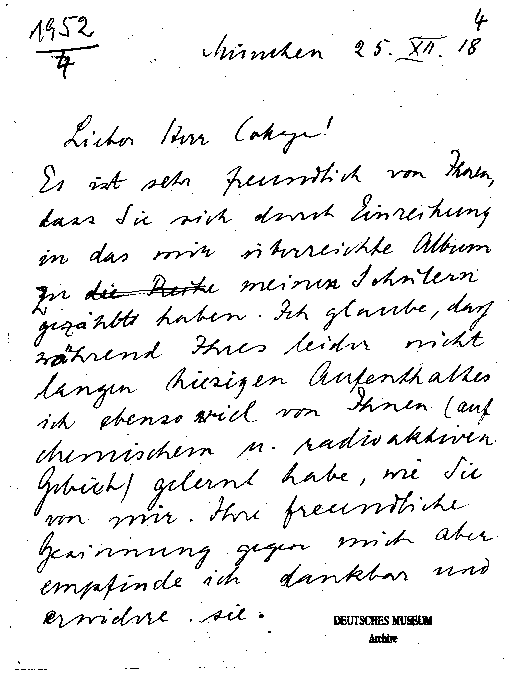 1952
4
4
München 25. XII. 18
Lieber Herr College!
Es ist sehr freundlich von Ihnen,
dass Sie sich durch Einreihung
in das mir überreichte Album
zu die Reihe meinen Schülern
gezählt haben. Ich glaube, dass
während Ihres leider nicht
langen hiesigen Aufenthaltes
ich ebenso viel von Ihnen (auf
chemischem u. radioaktiven
Gebiet) gelernt habe, wie Sie
von mir. Ihre freundliche
Gesinnung gegen mich aber
empfinde ich dankbar und
erwidere sie.
DEUTSCHES MUSEUM
Archive